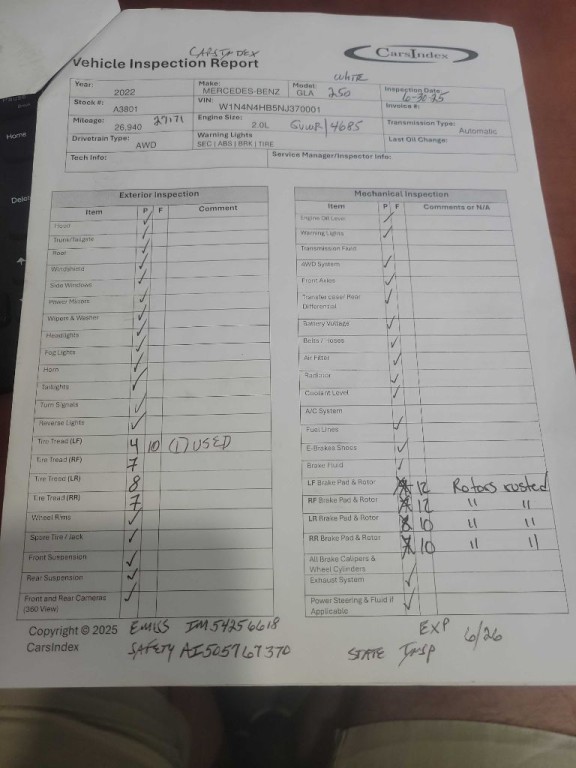 CARSINDEX
Vehicle Inspection Report
CarsIndex
White
Year: 2022 Make: MERCEDES-BENZ Model: GLA 250 Inspection Date: 6-30-25
Stock #: A3801 VIN: W1N4N4HB5NJ370001 Invoice #:
Mileage: 26,940 27171 Engine Size: 2.0L GVWR/4685 Transmission Type: Automatic
Drivetrain Type: AWD Warning Lights SEC | ABS | BRK | TIRE Last Oil Change:
Tech Info: Service Manager/Inspector Info:
Exterior Inspection
Item P F Comment
Hood ✓
Trunk/Tailgate ✓
Door ✓
Windshield ✓
Side Windows ✓
Power Mirrors ✓
Wipers & Washer ✓
Headlights ✓
Fog Lights ✓
Horn ✓
Taillights ✓
Turn Signals ✓
Reverse Lights ✓
Tire Tread (LF) 4 10 (1) USED
Tire Tread (RF) 7
Tire Tread (LR) 8
Tire Tread (RR) 7
Wheel Rims ✓
Spare Tire / Jack ✓
Front Suspension ✓
Rear Suspension ✓
Front and Rear Cameras ✓
(360 View)
Mechanical Inspection
Item P F Comments or N/A
Engine Oil Level ✓
Warning Lights ✓
Transmission Fluid
AWD System ✓
Front Axles ✓
Transfer case/ Rear ✓
Differential
Battery Voltage ✓
Belts / Hoses ✓
Air Filter ✓
Radiator ✓
Coolant Level ✓
A/C System
Fuel Lines ✓
E-Brakes Shoes ✓
Brake Fluid ✓
LF Brake Pad & Rotor 12 Rotors rusted
RF Brake Pad & Rotor 12 " "
LR Brake Pad & Rotor 10 " "
RR Brake Pad & Rotor 10 " "
All Brake Calipers & ✓
Wheel Cylinders
Exhaust System ✓
Power Steering & Fluid if ✓
Applicable
Copyright © 2025
CarsIndex
EMISS IM54256618
SAFETY AI505767370
EXP 6/26
STATE INSP
Home